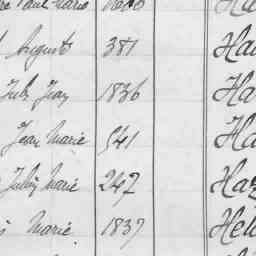 Paul Marie
Auguste 381 Ha
July Jean 1836 Ha
Jean Marie 541 Ha
Julien Marie 247 Haz
Marie 1837 Hel